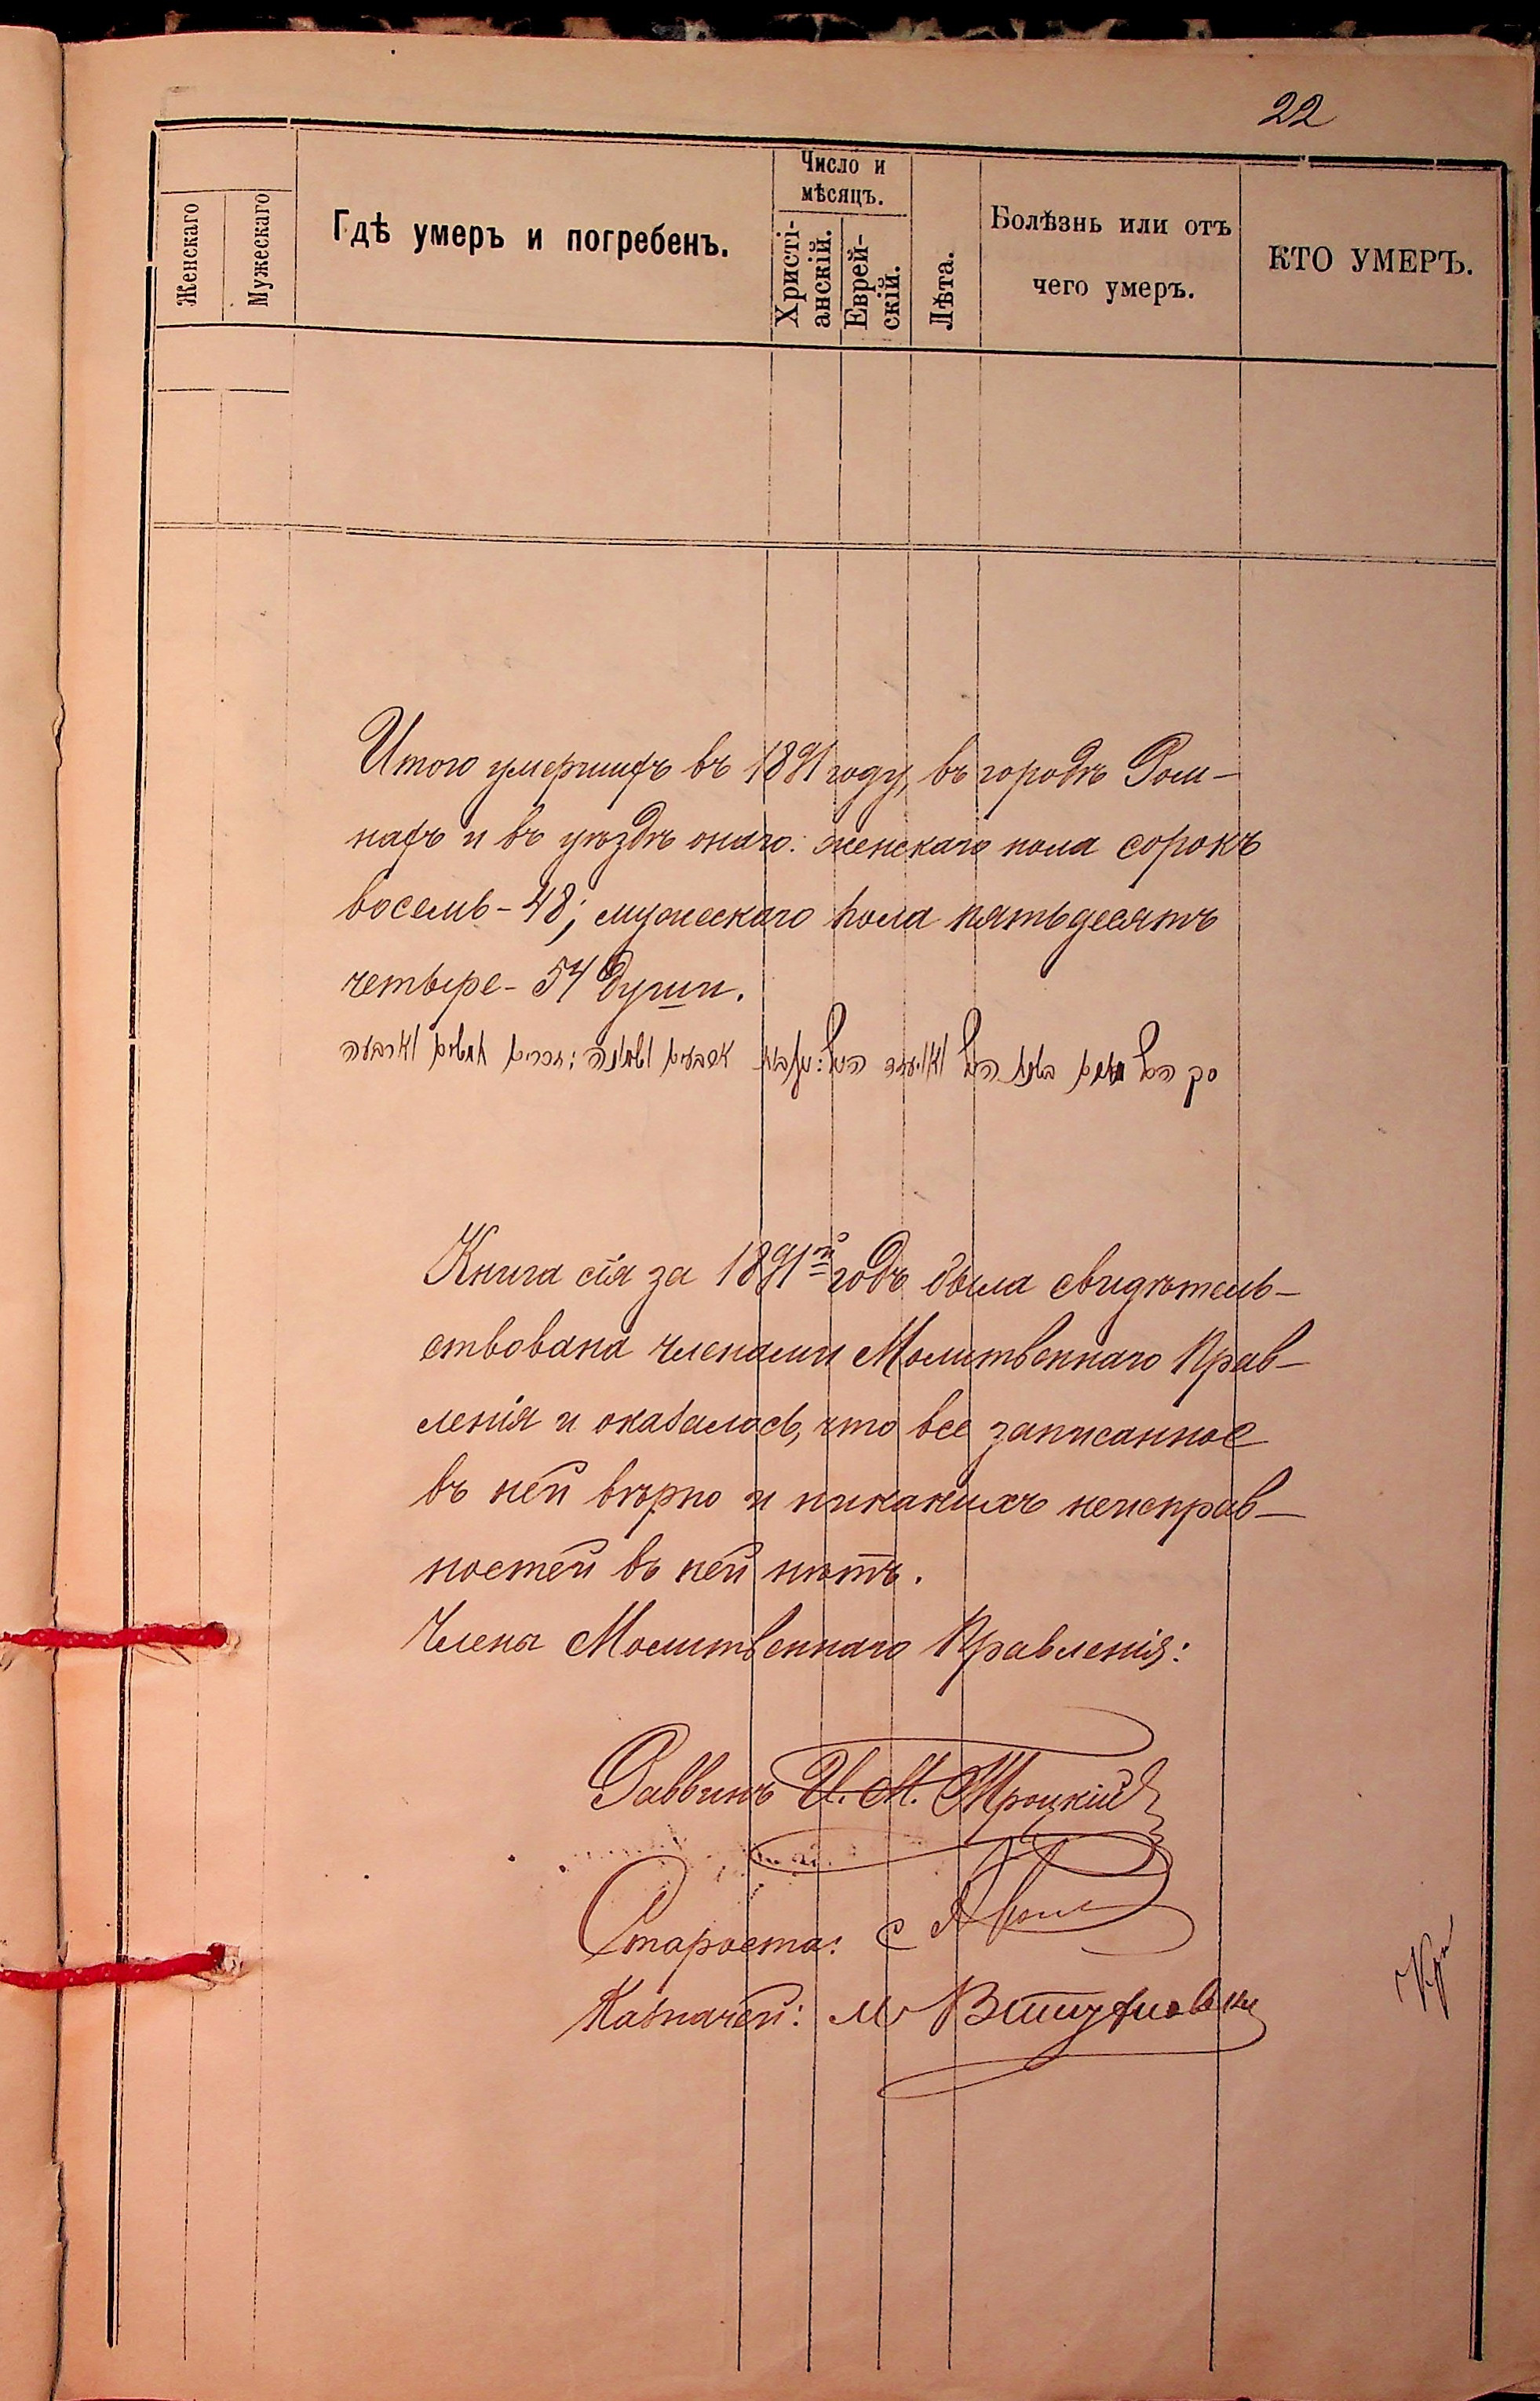 22
Женскаго
Мужескаго
Гдѣ умеръ и погребенъ.
Число и
мѣсяцъ.
Христі-
анскій.
Еврей-
скій.
Лѣта.
Болѣзнь или отъ
чего умеръ.
КТО УМЕРЪ.
Итого умершихъ въ 1891 году, въ городѣ Ром-
нахъ и въ уѣздѣ онаго: женскаго пола сорокъ
восемь - 48; мужескаго пола пятьдесятъ
четыре - 54 души.
ארבעים ושמנה; זכרים חמשים וארבעה
Книга сія за 1891й годъ была свидѣтель-
ствована членами Молитвеннаго Прав-
ленія и оказалось, что все записанное
въ ней вѣрно и никакихъ неисправ-
ностей въ ней нѣтъ.
Члены Молитвеннаго Правленія:
Раввинъ И. М. Троцкій
Староста:
Казначей: М